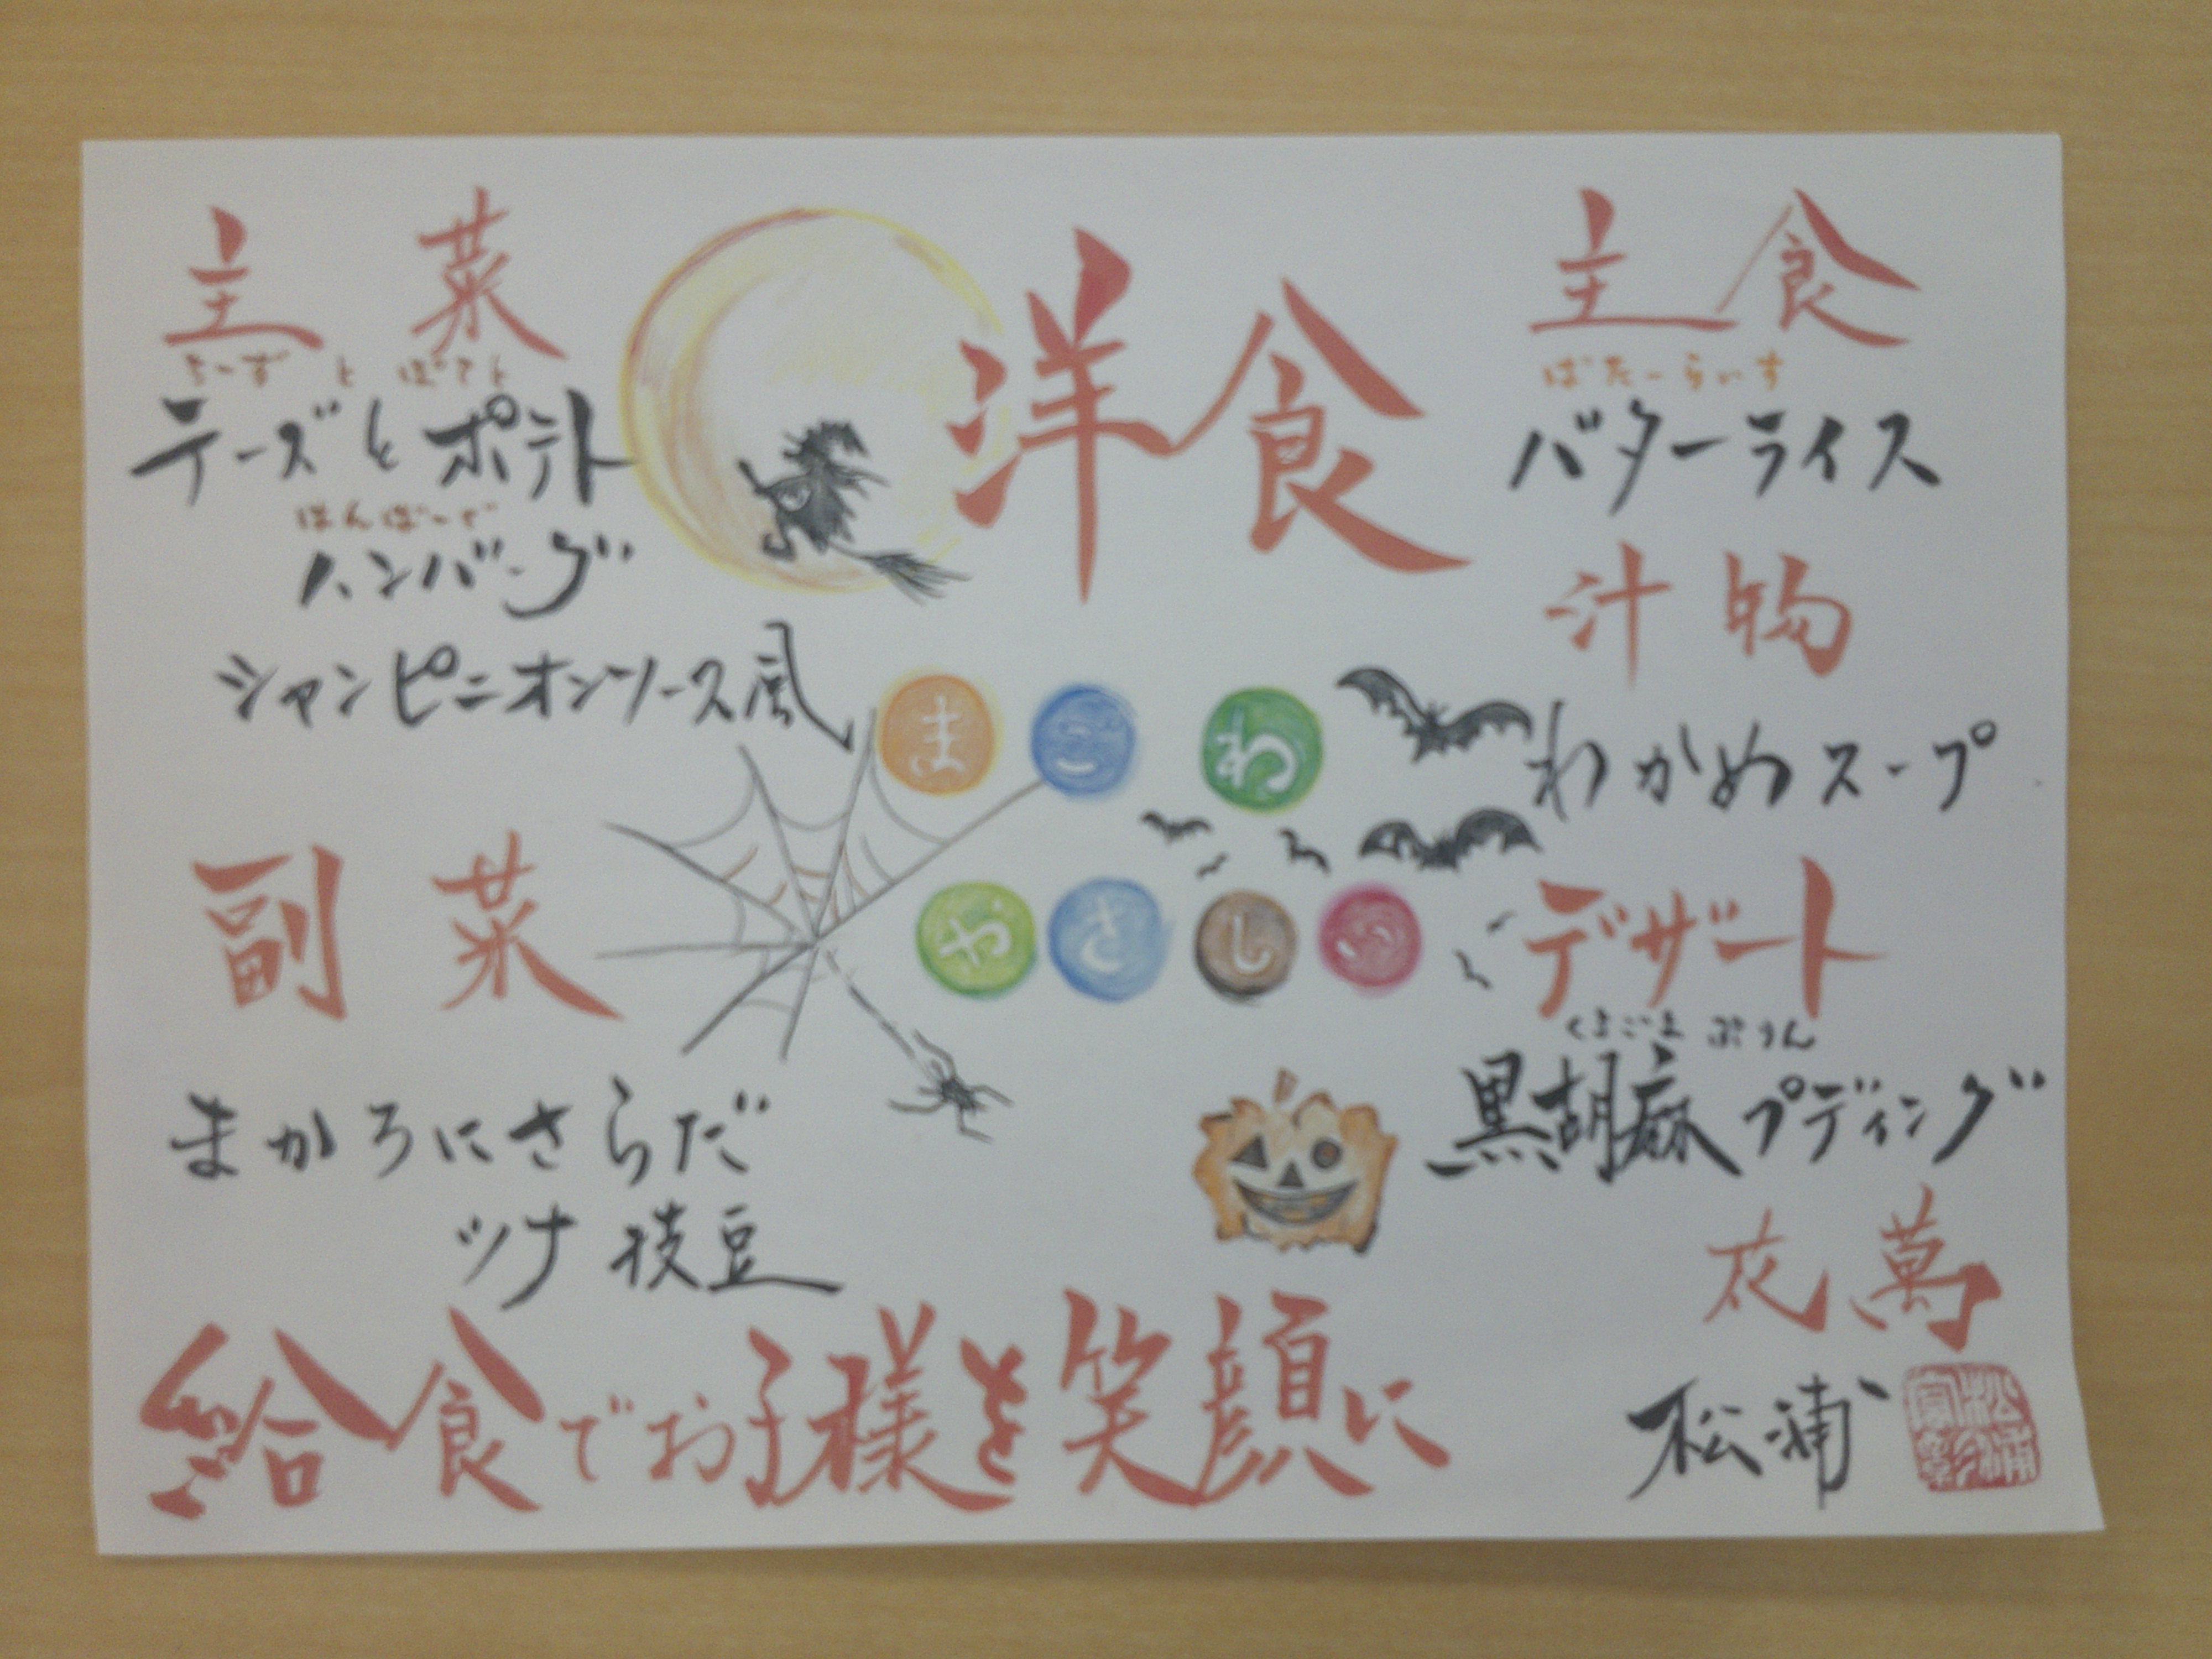 洋食
主菜
ちーず と ぽてと
チーズとポテト
はんばーぐ
ハンバーグ
シャンピニオンソース風
主食
ばたーらいす
バターライス
汁物
わかめスープ
まごわ
やさしい
副菜
まかろにさらだ
ツナ 枝豆
デザート
くろごま ぷりん
黒胡麻プディング
給食でお子様を笑顔に
花萬
松浦